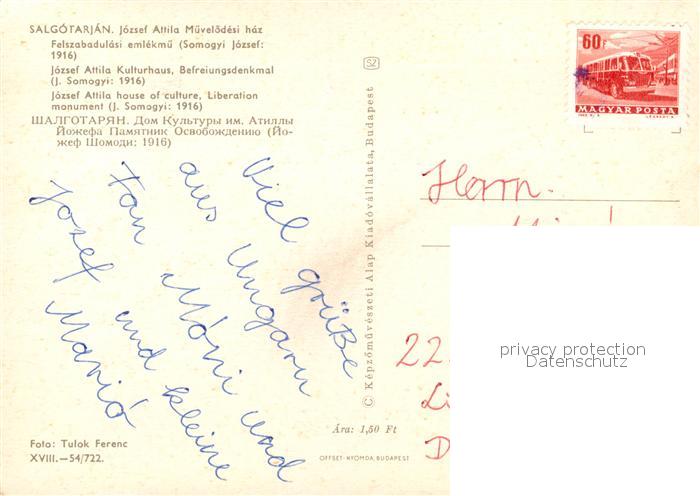 SALGÓTARJÁN. József Attila Művelődési ház
Felszabadulási emlékmű (Somogyi József:
1916)
József Attila Kulturhaus, Befreiungsdenkmal
(J. Somogyi: 1916)
József Attila house of culture, Liberation
monument (J. Somogyi: 1916)
ШАЛГОТАРЯН. Дом Культуры им. Атиллы
Йожефа Памятник Освобождению (Йо-
жеф Шомоди: 1916)
Viel grüße
aus Ungarn
Móni und
Jozef und kleine
Marió
Foto: Tulok Ferenc
XVIII.—54/722.
Ára: 1,50 Ft
OFFSET-NYOMDA, BUDAPEST
© Képzőművészeti Alap Kiadóvállalata, Budapest
SZ
60F
MAGYAR POSTA
Herrn.
22
Li
D
privacy protection
Datenschutz